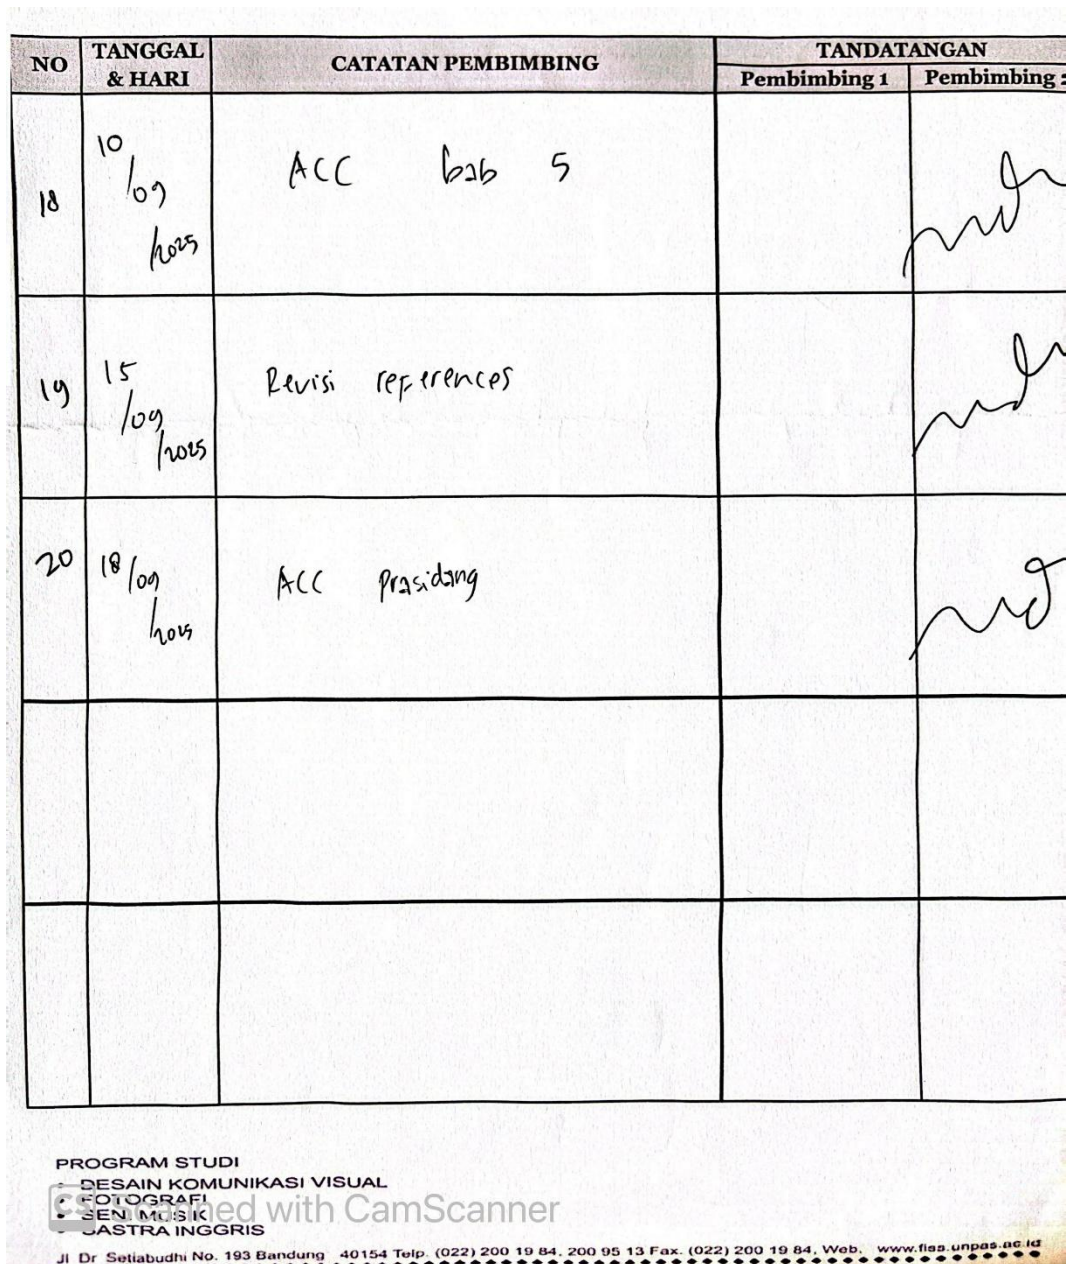 NO TANGGAL & HARI CATATAN PEMBIMBING TANDATANGAN
Pembimbing 1 Pembimbing 2
18 10/09/2025 ACC bab 5
19 15/09/2025 Revisi references
20 18/09/2025 ACC Prasidang
PROGRAM STUDI
• DESAIN KOMUNIKASI VISUAL
• FOTOGRAFI
• SENI MUSIK
• SASTRA INGGRIS
CS Scanned with CamScanner
Jl Dr Setiabudhi No. 193 Bandung 40154 Telp. (022) 200 19 84, 200 95 13 Fax. (022) 200 19 84, Web. www.fiss.unpas.ac.id